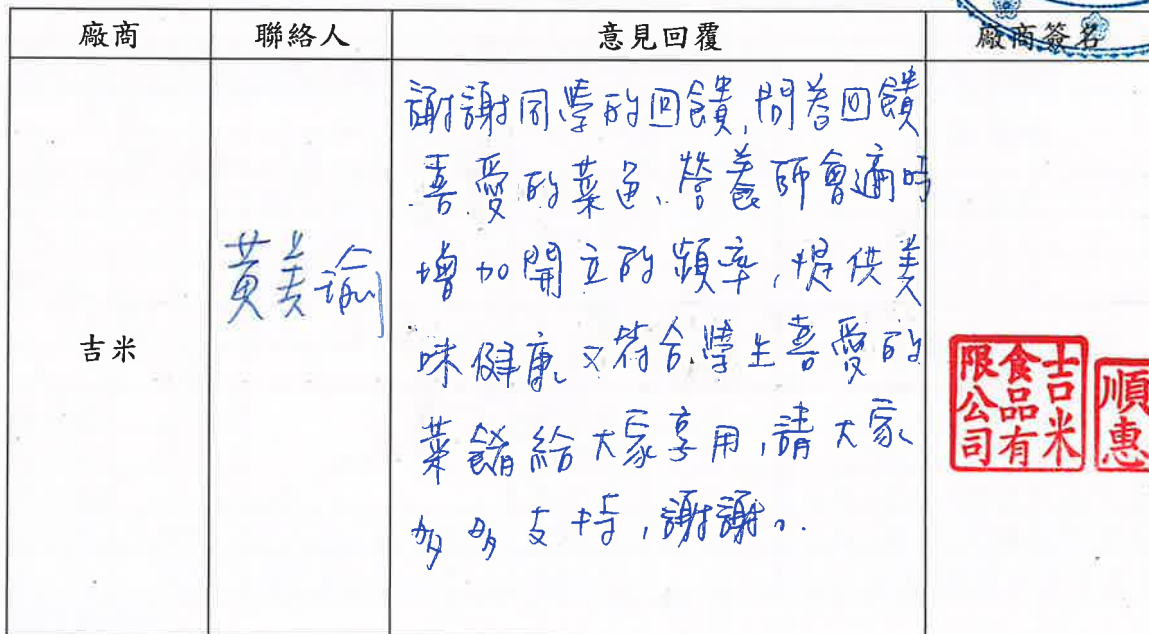 廠商 聯絡人 意見回覆 廠商簽名
吉米
黃美瑜
謝謝同學的回饋,問卷回饋
喜愛的菜色、營養師會適時
增加開立的頻率,提供美
味健康又符合學生喜愛的
菜餚給大家享用,請大家
多多支持,謝謝。
吉米食品有限公司
順惠